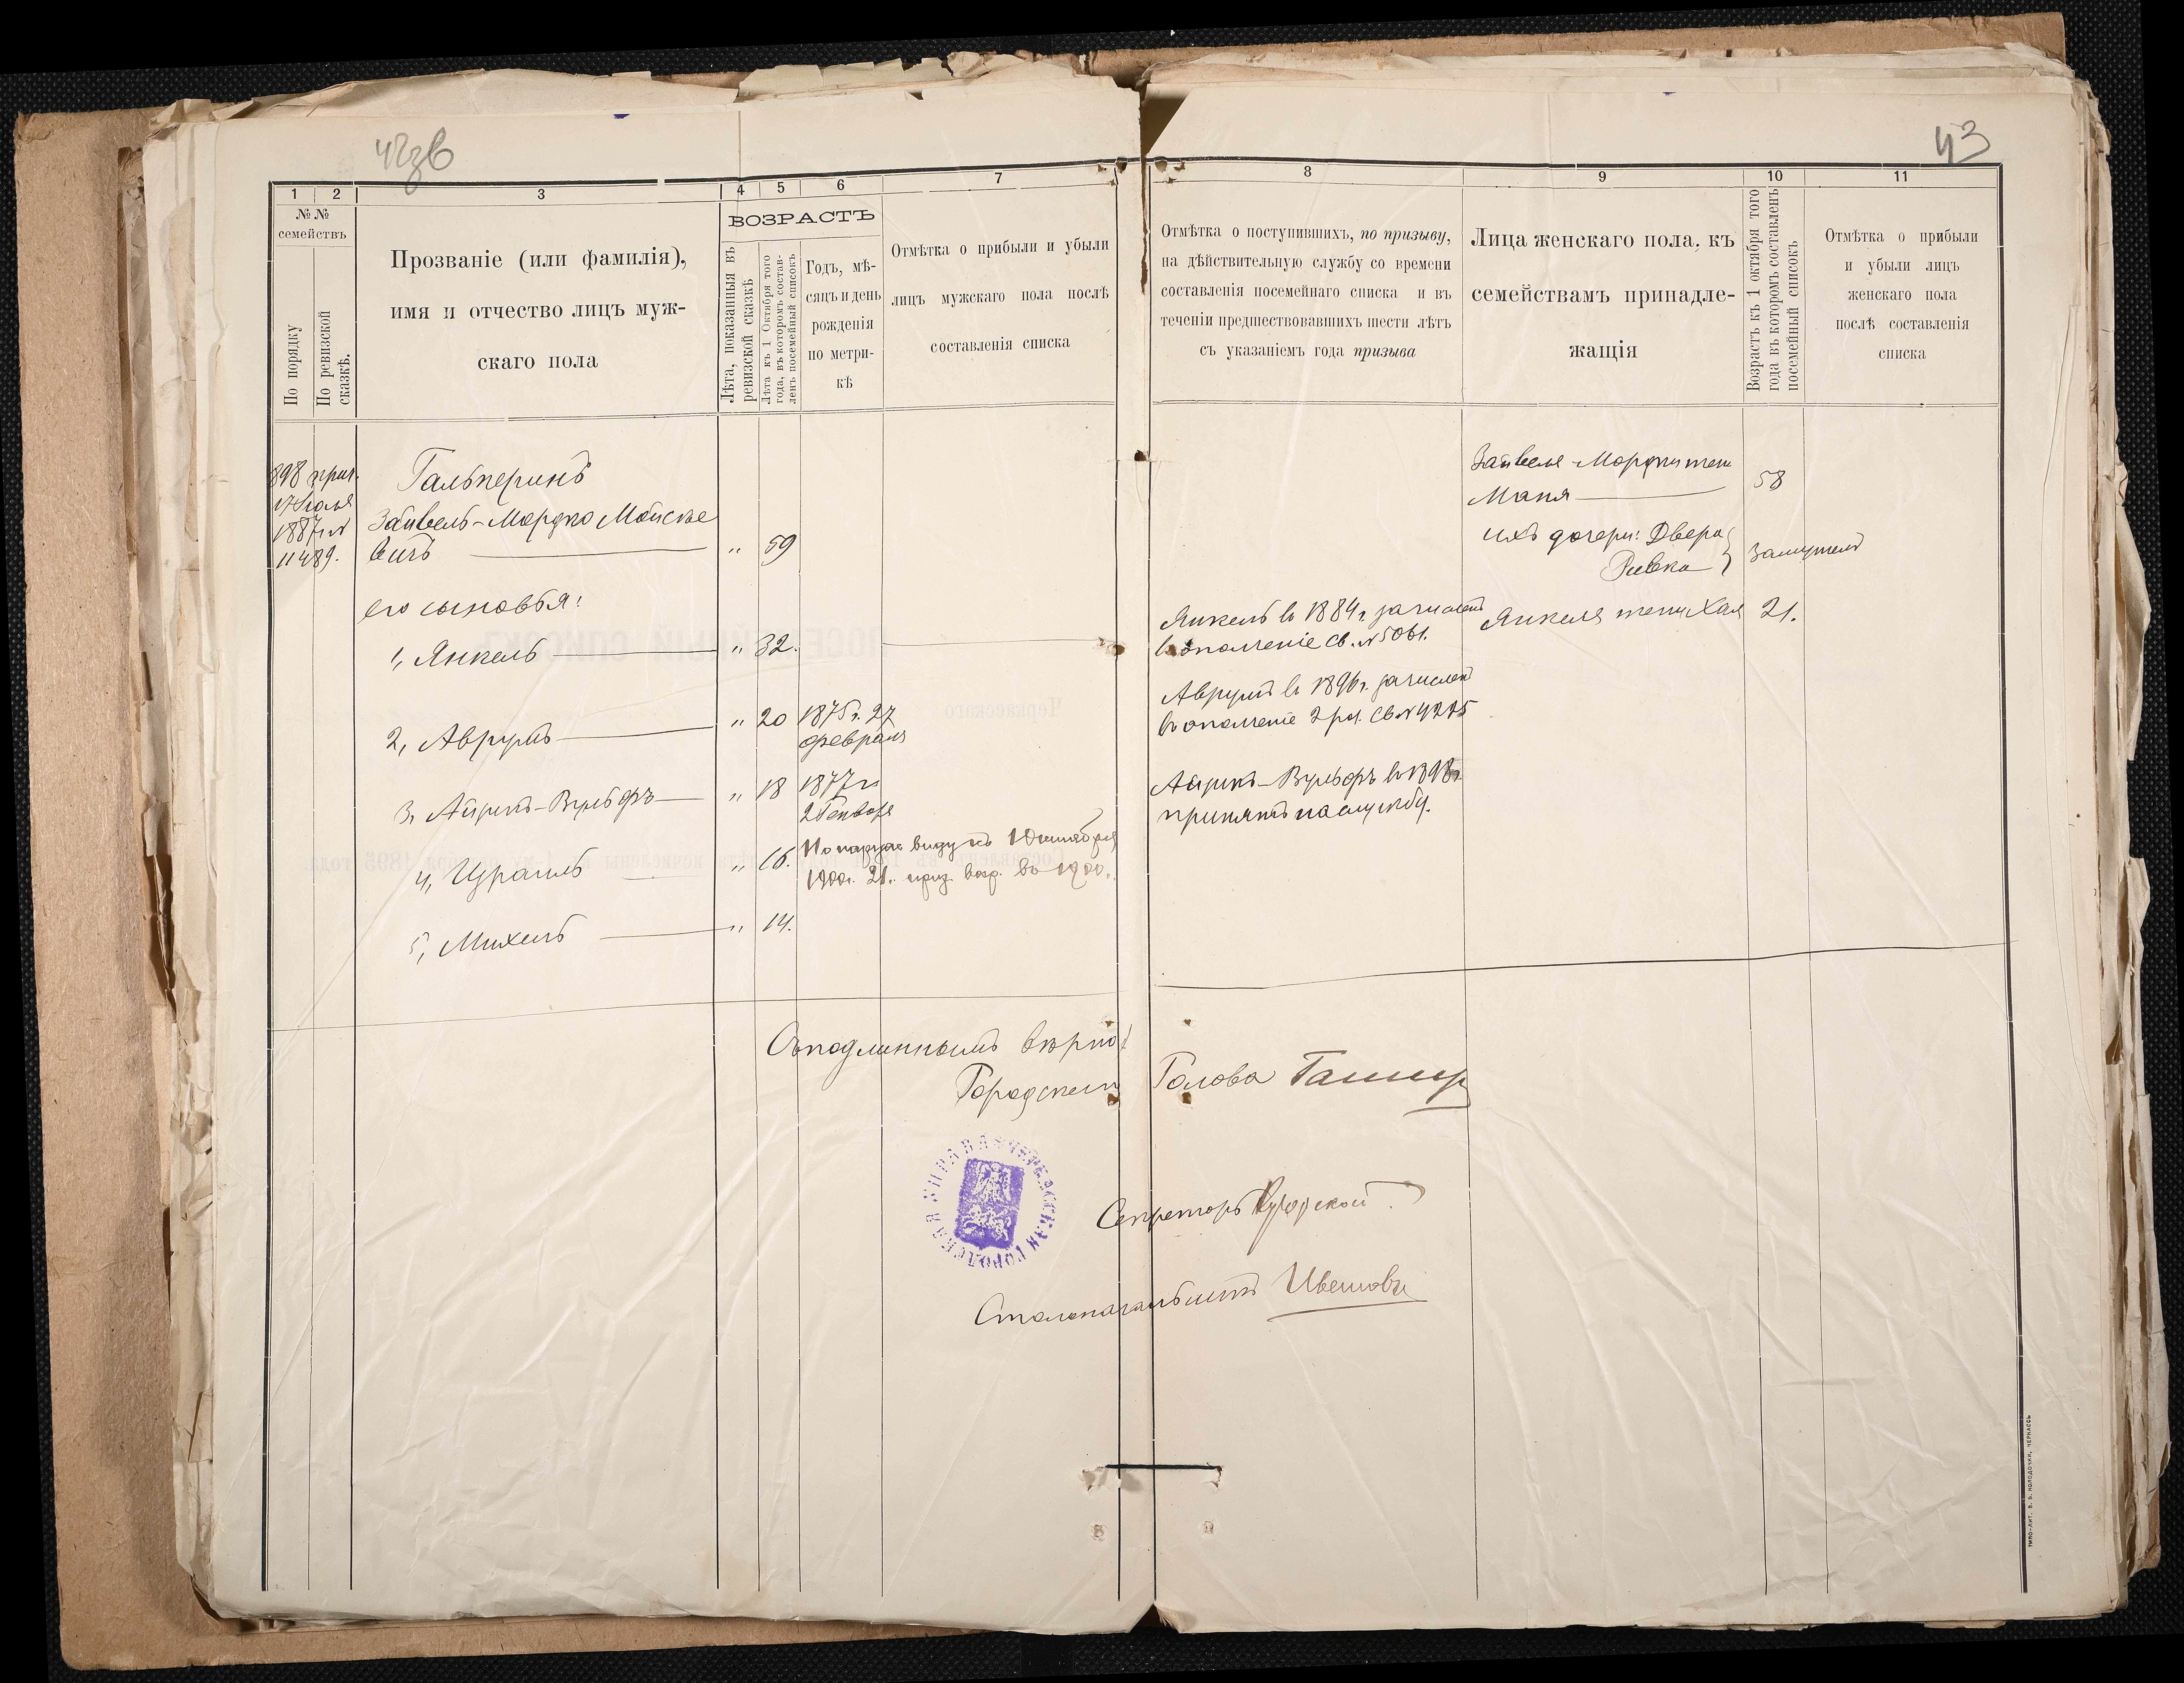 42зв
43
1
2
3
4
5
6
7
8
9
10
11
№ №
семействъ
По порядку
По ревизской
сказкѣ.
Прозваніе (или фамилія),
имя и отчество лицъ муж-
скаго пола
ВОЗРАСТЪ
Лѣта, показанныя въ
ревизской сказкѣ
Лѣта къ 1 Октября того
года, въ которомъ состав-
ленъ посемейный списокъ
Годъ, мѣ-
сяцъ и день
рожденія
по метри-
кѣ
Отмѣтка о прибыли и убыли
лицъ мужскаго пола послѣ
составленія списка
Отмѣтка о поступившихъ, по призыву,
на дѣйствительную службу со времени
составленія посемейнаго списка и въ
теченіи предшествовавшихъ шести лѣтъ
съ указаніемъ года призыва
Лица женскаго пола, къ
семействамъ принадле-
жащія
Возрастъ къ 1 октября того
года въ которомъ составленъ
посемейный списокъ
Отмѣтка о прибыли
и убыли лицъ
женскаго пола
послѣ составленія
списка
898 прич.
17 Іюля
1887 г. №
11489.
Гальперинъ
Зайвель-Мордко Мойсѣе
вичъ " 59
его сыновья:
1, Янкель " 32.
2, Аврумъ " 20 1875 г. 27
февраля
3, Айзикъ-Вульфъ " 18 1877 г.
2 Генваря
4, Израиль " 16. По наруж. виду къ 1 Октября
1900 г. 21 г. приз. возр. въ 1900 г.
5, Михель " 14.
Янкель въ 1884 г. зачисленъ
въ ополченіе св. № 5061.
Аврумъ въ 1896 г. зачисленъ
въ ополченіе 2 раз. св. № 4275
Айзикъ-Вульфъ въ 1898 г.
принятъ на службу.
Зайвеля-Мордки жена
Маня 58
ихъ дочери: Двера
Ривка замужемъ
Янкеля жена Хая 21.
Съ подлиннымъ вѣрно:
Городской Голова
ЧЕРКАССКАЯ ГОРОДСКАЯ УПРАВА
Секретарь
Столоначальникъ Цвѣтовъ
ТИПО-ЛИТ. В. В. КОЛОДОЧКИ, ЧЕРКАССЫ